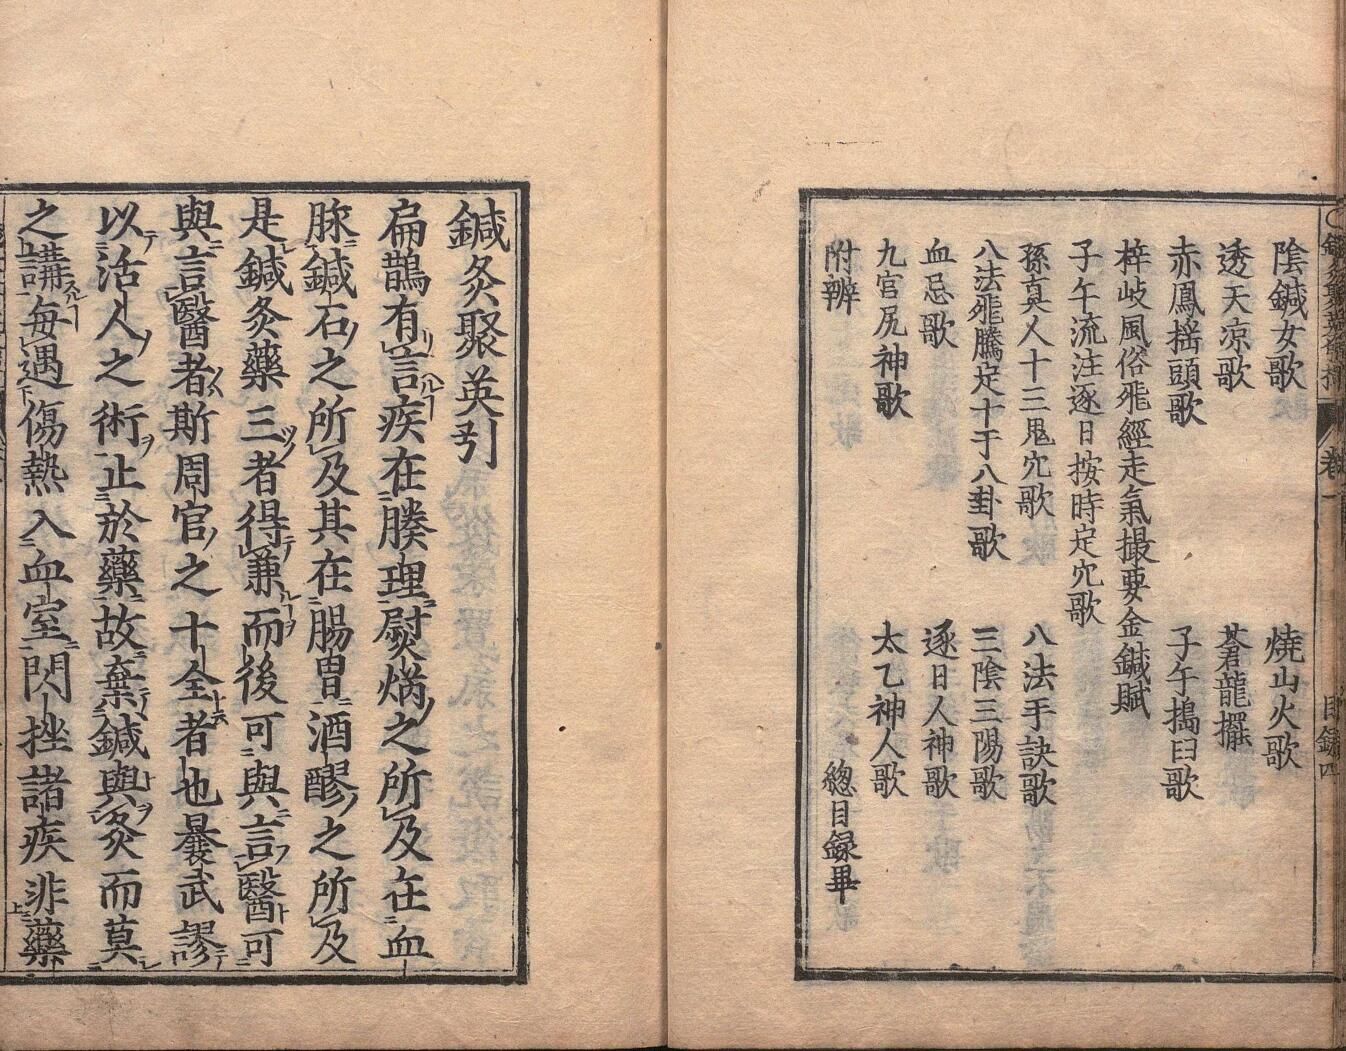 陰鍼女歌
燒山火歌
透天凉歌
蒼龍擺
赤鳳揺頭歌
子午搗臼歌
梓岐風俗飛經走氣撮要金鍼賦
子午流注逐日按時定穴歌
孫真人十三鬼穴歌
八法手訣歌
八法飛騰定十干八卦歌
三陰三陽歌
血忌歌
逐日人神歌
九宫尻神歌
太乙神人歌
附辨
總目録畢
鍼灸聚英引
扁鵲有言疾在腠理熨焫之所及在血
脉鍼石之所及其在腸胃酒醪之所及
是鍼灸藥三者得兼而後可與言醫可
與言醫者斯周官之十全者也曩武謬
以活人之術止於藥故棄鍼與灸而莫
之講每遇傷熱入血室閃挫諸疾非藥